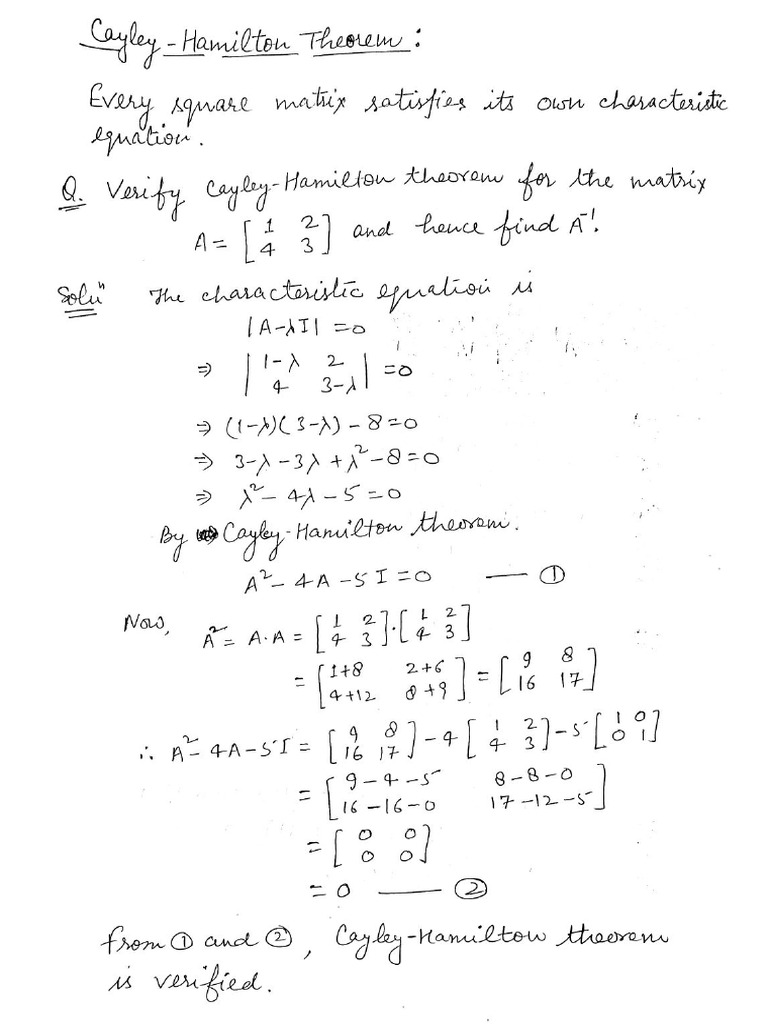 Cayley-Hamilton Theorem:
Every square matrix satisfies its own characteristic
equation.
Q. Verify Cayley-Hamilton theorem for the matrix
A = [1 2; 4 3] and hence find A⁻¹.
Soluⁿ The characteristic equation is
|A-λI| = 0
⇒ |1-λ 2; 4 3-λ| = 0
⇒ (1-λ)(3-λ) - 8 = 0
⇒ 3-λ-3λ+λ²-8 = 0
⇒ λ² - 4λ - 5 = 0
By Cayley-Hamilton theorem.
A² - 4A - 5I = 0 — ①
Now,
A² = A·A = [1 2; 4 3]·[1 2; 4 3]
= [1+8 2+6; 4+12 8+9] = [9 8; 16 17]
∴ A² - 4A - 5I = [9 8; 16 17] - 4[1 2; 4 3] - 5[1 0; 0 1]
= [9-4-5 8-8-0; 16-16-0 17-12-5]
= [0 0; 0 0]
= 0 — ②
from ① and ②, Cayley-Hamilton theorem
is verified.